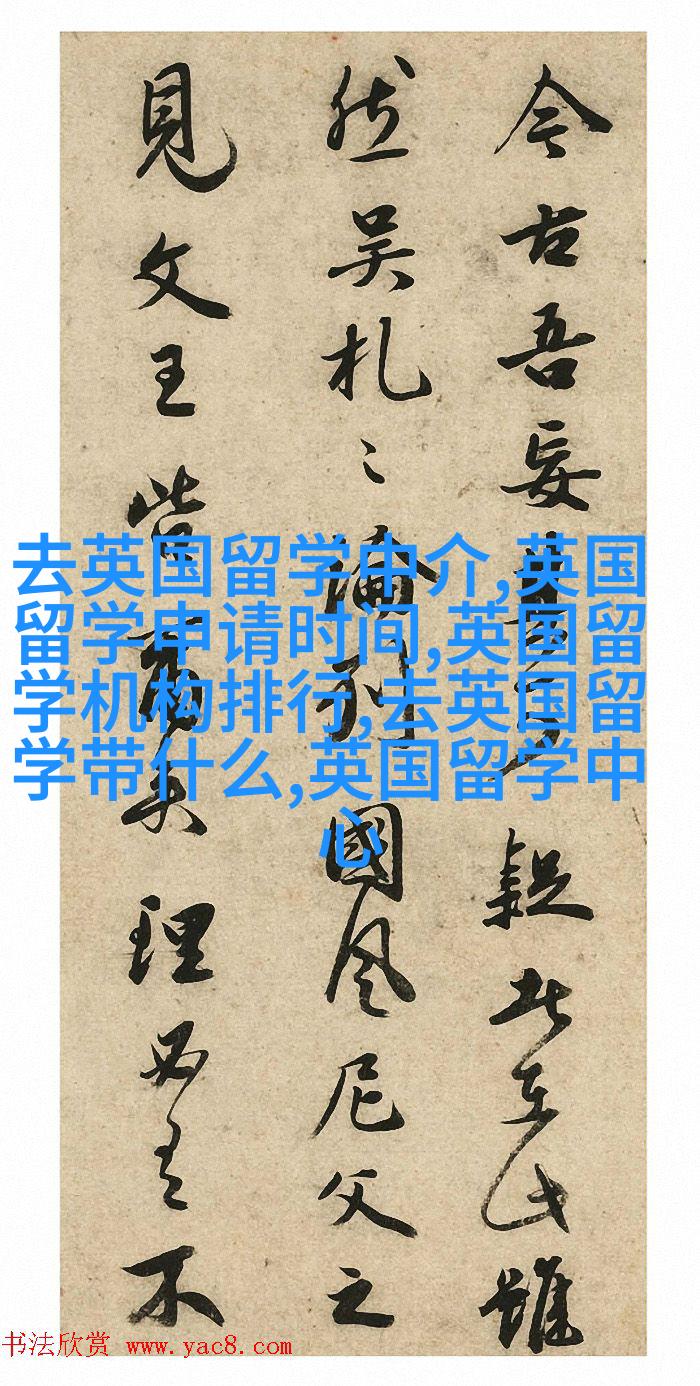 今古吾妄疑雖
然吴札〻論列國風尼父之
見文王理必有不
去英国留学中介,英国
留学申请时间,英国留
学机构排行,去英国留
学带什么,英国留学中
心
书法欣赏 www.yac8.com